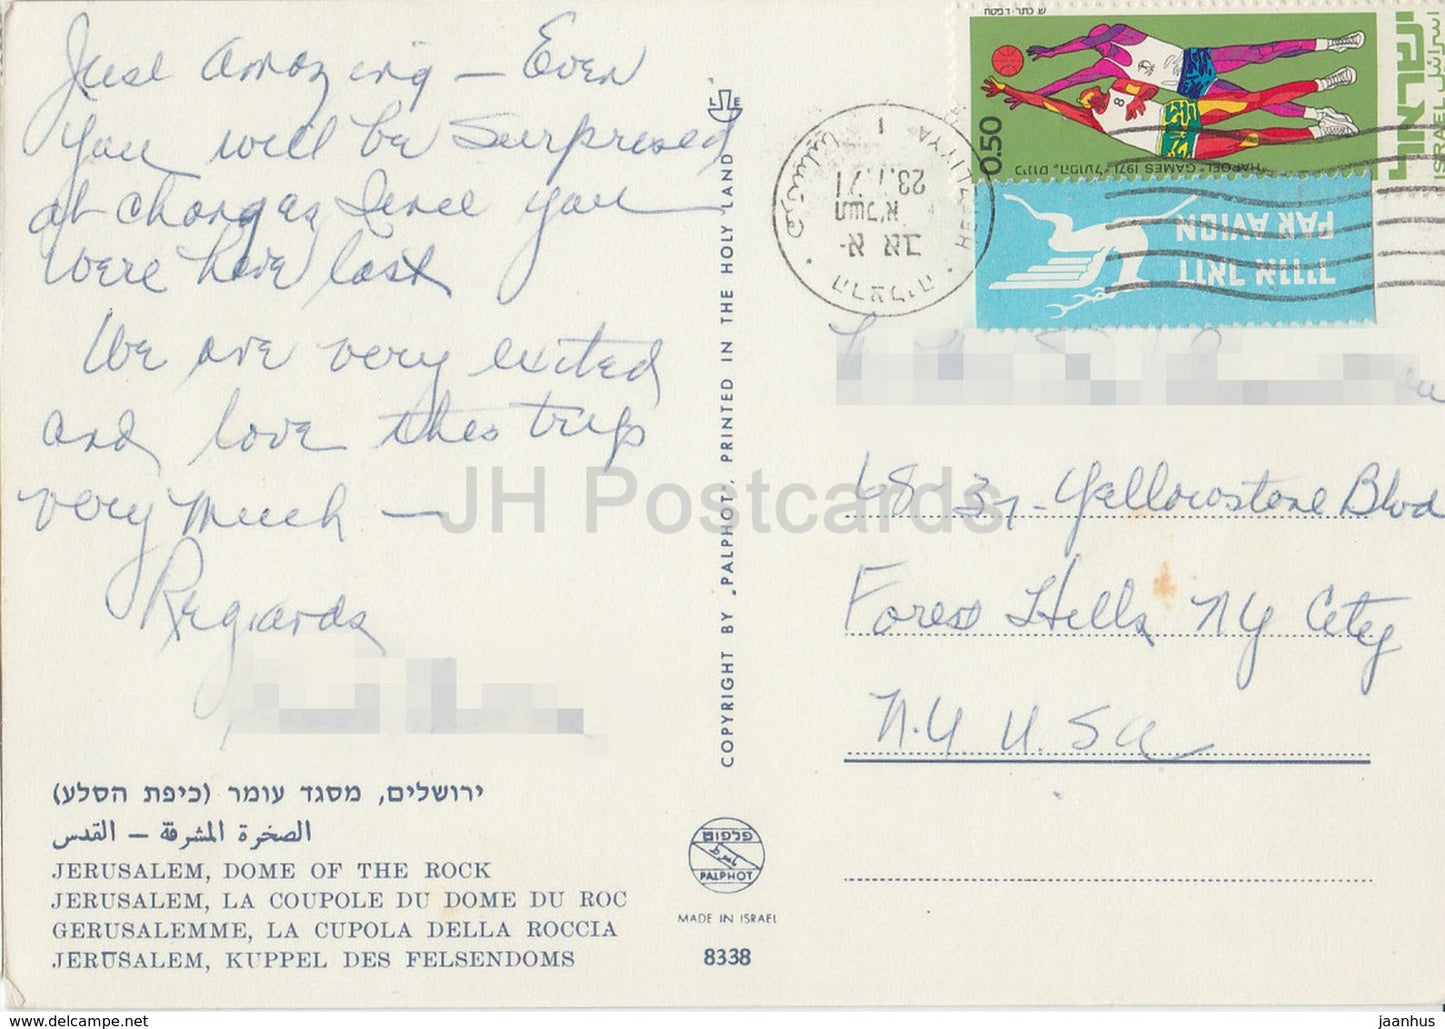 Just amazing — Even
you will be surprised
at changes since you
were here last
We are very exited
and love this trip
very much —
Regards
ירושלים, מסגד עומר (כיפת הסלע)
الصخرة المشرفة — القدس
JERUSALEM, DOME OF THE ROCK
JERUSALEM, LA COUPOLE DU DOME DU ROC
GERUSALEMME, LA CUPOLA DELLA ROCCIA
JERUSALEM, KUPPEL DES FELSENDOMS
COPYRIGHT BY „PALPHOT', PRINTED IN THE HOLY LAND
L E
פלפוט
PALPHOT
MADE IN ISRAEL
8338
ש. כתר · ד. פסח
ישראל
اسرائيل
ISRAEL
0.50
8
"HAPOEL" GAMES 1971 כינוס "הפועל"
PAR AVION
דואר אויר
HERZLIYYA
1
23.7.71
תשל"א
א - אב
הרצליה
68-37-Yellowstone Blvd
Forest Hills NY City
N.Y U.Sa
JH Postcards
www.delcampe.net
jaanhus